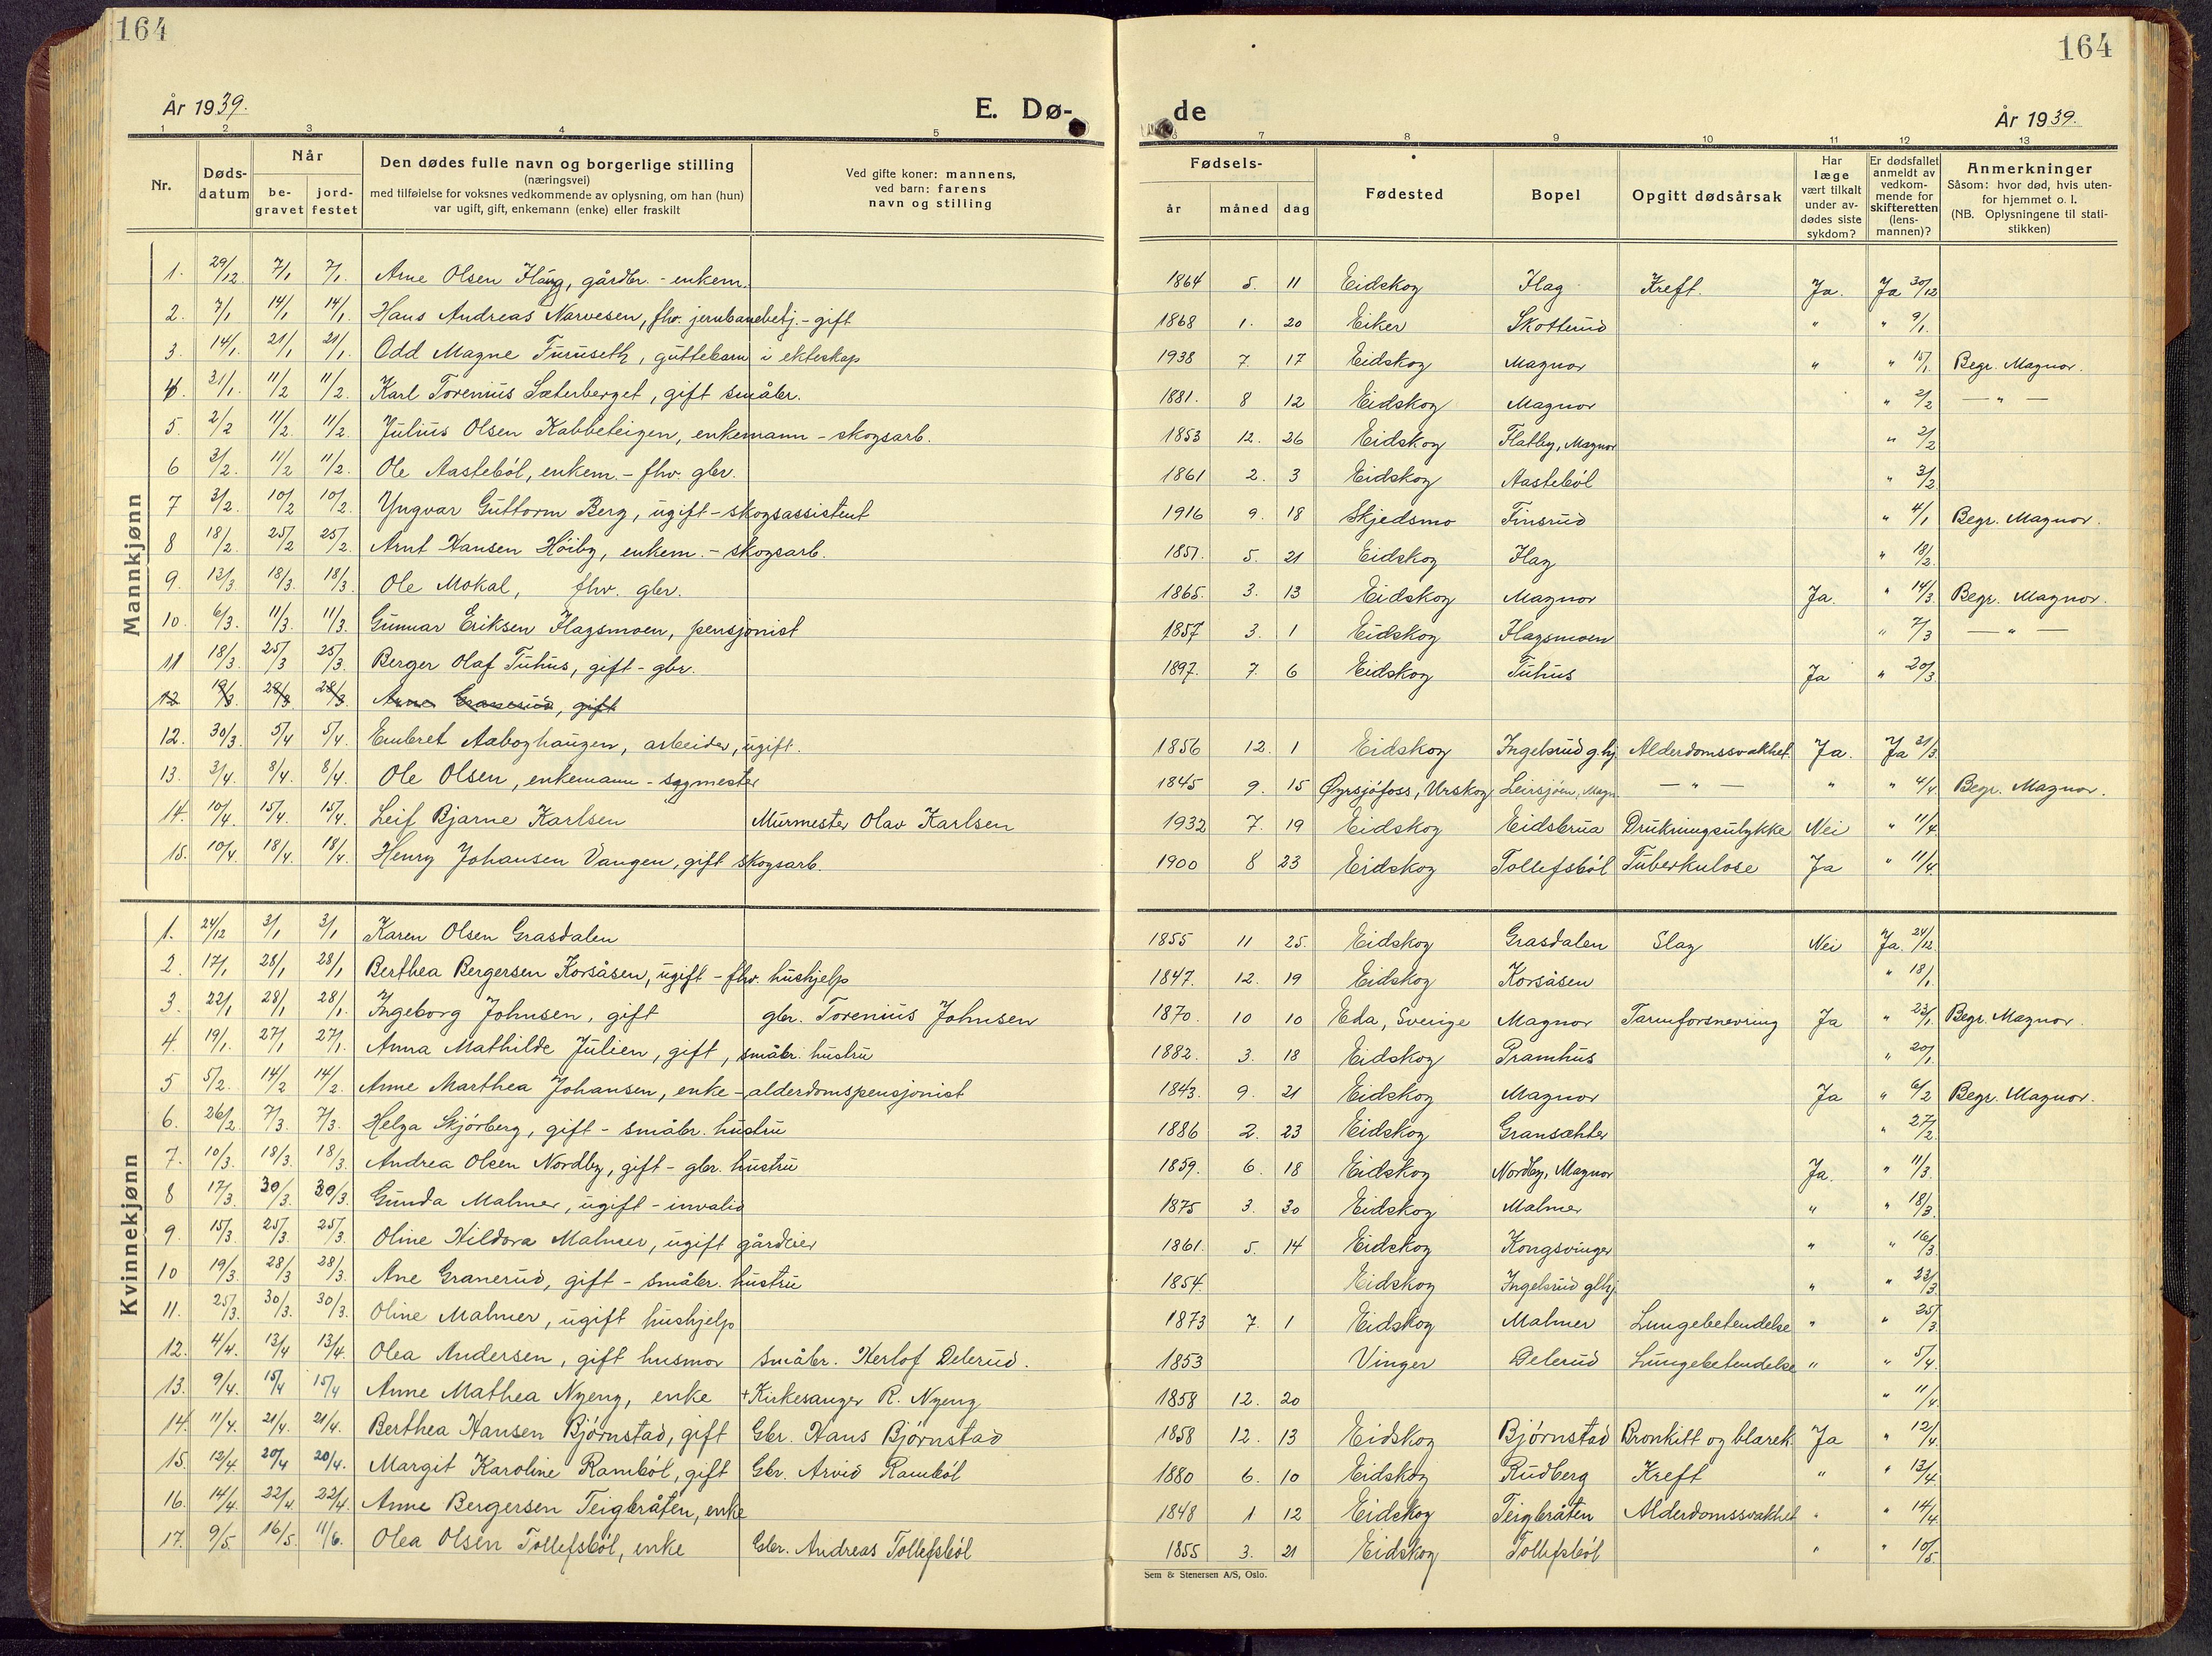 164
164
År 1939.
E. Dø-
de
År 1939.
1 2 3 4 5 6 7 8 9 10 11 12 13
Nr.
Døds-
datum
Når
be-
gravet
jord-
festet
Den dødes fulle navn og borgerlige stilling
(næringsvei)
med tilføielse for voksnes vedkommende av oplysning, om han (hun)
var ugift, gift, enkemann (enke) eller fraskilt
Ved gifte koner: mannens,
ved barn: farens
navn og stilling
Fødsels-
år måned dag
Fødested
Bopel
Opgitt dødsårsak
Har
læge
vært tilkalt
under av-
dødes siste
sykdom?
Er dødsfallet
anmeldt av
vedkom-
mende for
skifteretten
(lens-
mannen)?
Anmerkninger
Såsom: hvor død, hvis uten-
for hjemmet o. l.
(NB. Oplysningene til stati-
stikken)
Mannkjønn
1. 29/12. 7/1 7/1. Arne Olsen Flaug, gårdbr. - enkem. 1864 5. 11 Eidskog Flag Kreft. Ja. Ja 30/12
2. 7/1 14/1 14/1. Hans Andreas Narvesen, fhv. jernbanebetj. - gift 1868 1. 20 Eiker Skotterud " " 9/1.
3. 14/1. 21/1 21/1. Odd Magne Furuseth, guttebarn i ekteskap 1938 7. 17 Eidskog Magnor " " 15/1. Begr. Magnor.
4. 31/1. 11/2 11/2. Karl Torenius Sæterberget, gift småbr. 1881. 8 12 Eidskog Magnor " 2/2 — " —
5. 2/2 11/2. 11/2. Julius Olsen Kabbeteigen, enkemann - skogsarb. 1853 12. 26 Eidskog Flatby, Magnor " 2/2
6 3/2. 11/2 11/2. Ole Aastebøl, enkem. - fhv. gbr. 1861 2. 3 Eidskog Aastebøl " 3/2
7 3/2. 10/2 10/2. Yngvar Guttorm Berg, ugift - skogsassistent 1916 9. 18 Skjedsmo Finsrud " 4/1 Begr. Magnor.
8 18/2. 25/2 25/2. Arnt Hansen Høiby, enkem. - skogsarb. 1851. 5. 21 Eidskog Flag " 18/2.
9. 13/3 18/3. 18/3. Ole Mokal, fhv. gbr. 1865. 3. 13 Eidskog Magnor Ja. " 14/3. Begr. Magnor.
10. 6/3. 11/3. 11/3. Gunnar Eriksen Flagsmoen, pensjonist 1857 3. 1 Eidskog Flagsmoen " 7/3 — " —
11 18/3. 25/3 25/3. Berger Olaf Tuhus, gift - gbr. 1897. 7. 6 Eidskog Tuhus Ja " 20/3.
12 19/3. 28/3 28/3. Anne Granerud, gift
12. 30/3. 5/4 5/4. Embret Aaboghaugen, arbeider, ugift. 1856 12. 1 Eidskog Ingelsrud g.hj. Alderdomssvakhet Ja. Ja 31/3
13. 3/4. 8/4. 8/4. Ole Olsen, enkemann - sagmester 1845 9. 15 Øyrsjøfoss, Urskog Leirsjøen, Magn. — " — " " 4/4 Begr. Magnor.
14. 10/4. 15/4. 15/4. Leif Bjarne Karlsen Murmester Olav Karlsen 1932 7. 19 Eidskog Eidsbrua Drukningsulykke Nei " 11/4
15. 10/4. 18/4. 18/4. Henry Johansen Vangen, gift skogsarb. 1900 8 23 Eidskog Tollefsbøl Tuberkulose Ja " 11/4
Kvinnekjønn
1. 24/12 3/1 3/1 Karen Olsen Grasdalen 1855 11 25. Eidskog Grasdalen Slag Nei Ja. 24/12
2. 17/1 28/1 28/1 Berthea Bergersen Korsåsen, ugift - fhv. hushjelp 1847. 12. 19 Eidskog Korsåsen " 18/1.
3. 22/1 28/1 28/1. Ingeborg Johnsen, gift gbr. Torenius Johnsen 1870. 10 10 Eda, Sverige Magnor Tarmforsnevring Ja " 23/1. Begr. Magnor.
4. 19/1. 27/1 27/1. Anna Mathilde Julien, gift, småbr. hustru 1882. 3. 18 Eidskog Pramhus " 20/1.
5 5/2. 14/2 14/2. Anne Marthea Johansen, enke - alderdomspensjonist 1843. 9. 21 Eidskog Magnor Ja " 6/2 Begr. Magnor.
6. 26/2 7/3. 7/3. Helga Skjørberg, gift - småbr. hustru 1886 2. 23 Eidskog Gransæhter " 27/2.
7. 10/3. 18/3. 18/3. Andrea Olsen Nordby, gift - gbr. hustru 1859. 6. 18 Eidskog Nordby, Magnor Ja. " 11/3.
8 17/3. 30/3. 30/3. Gunda Malmer, ugift - invalid 1875 3. 30 Eidskog Malmer " " 18/3.
9. 15/3. 25/3. 25/3. Oline Hildora Malmer, ugift gårdeier 1861. 5. 14 Eidskog Kongsvinger " " 16/3.
10 19/3. 28/3 28/3. Ane Granerud, gift - småbr. hustru 1854. Eidskog Ingelsrud glhj. " " 22/3
11. 25/3. 30/3. 30/3. Oline Malmer, ugift hushjelp 1873 7. 1 Eidskog Malmer Lungebetendelse " " 25/3
12. 4/4. 13/4 13/4. Olea Andersen, gift husmor småbr. Herlof Delerud. 1853 Vinger Delerud Lungebetendelse " " 5/4.
13. 9/4. 15/4 15/4 Anne Mathea Nyeng, enke + Kirkesanger R. Nyeng 1858 12. 20 " 11/4.
14. 11/4. 21/4. 21/4. Berthea Hansen Bjørnstad, gift Gbr. Hans Bjørnstad 1858 12. 13 Eidskog Bjørnstad Bronkitt og blærek. Ja " 12/4.
15. 12/4. 20/4 20/4. Margit Karoline Rambøl, gift Gbr. Arvid Rambøl 1880 6. 10 Eidskog Rudberg Kreft " " 13/4.
16. 14/4. 22/4 22/4. Anne Bergersen Teigbråten, enke 1848 1 12 Eidskog Teigbråten Alderdomssvakhet " " 14/4.
17. 9/5. 16/5. 11/6. Olea Olsen Tollefsbøl, enke Gbr. Andreas Tollefsbøl 1855 3. 21 Eidskog Tollefsbøl " " 10/5.
Sem & Stenersen A/S, Oslo.